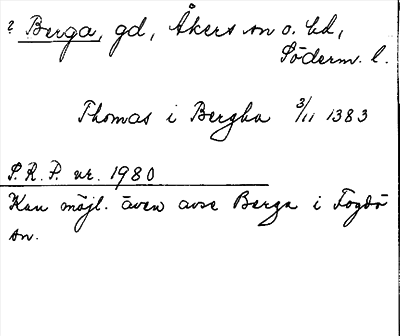 ? Berga, gd, Åkers sn o. hd,
Söderm. l.
Thomas i Bergha 3/11 1383
S.R.P. nr. 1980
Kan möjl. även avse Berga i Fogdö
sn.